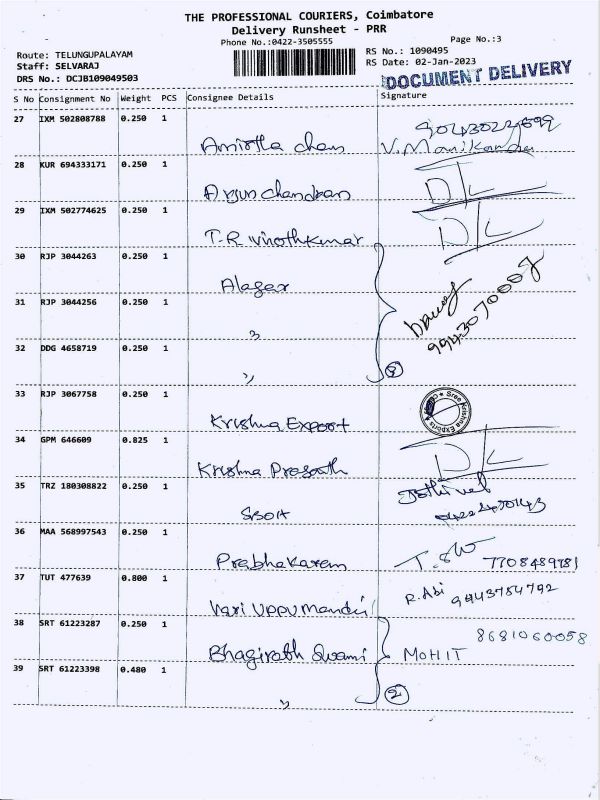 THE PROFESSIONAL COURIERS, Coimbatore
Delivery Runsheet - PRR
Phone No.:0422-3505555
Page No.:3
Route: TELUNGUPALAYAM
Staff: SELVARAJ
DRS No.: DCJB109049503
RS No.: 1090495
RS Date: 02-Jan-2023
DOCUMENT DELIVERY
S No Consignment No Weight PCS Consignee Details Signature
27 IXM 502808788 0.250 1
Amirtha chan V. Manikanda
28 KUR 694333171 0.250 1
Arjun chandran D/L
29 IXM 502774625 0.250 1
T-R Vinothkumar D/L
30 RJP 3044263 0.250 1
Alagar
31 RJP 3044256 0.250 1
"
9943070007
32 DDG 4658719 0.250 1
" 3
33 RJP 3067758 0.250 1
Krishna Export Sree Krishna Exports
34 GPM 646609 0.825 1
Krishna Prasath D/L
35 TRZ 180308822 0.250 1
SBOA Jothivel
36 MAA 568997543 0.250 1
Prabhakaran 7708489781
37 TUT 477639 0.800 1
Hari Uppumandi R.Abi 9943784792
38 SRT 61223287 0.250 1
Bhagirath Swami MOHIT 8681060058
39 SRT 61223398 0.480 1
" 2